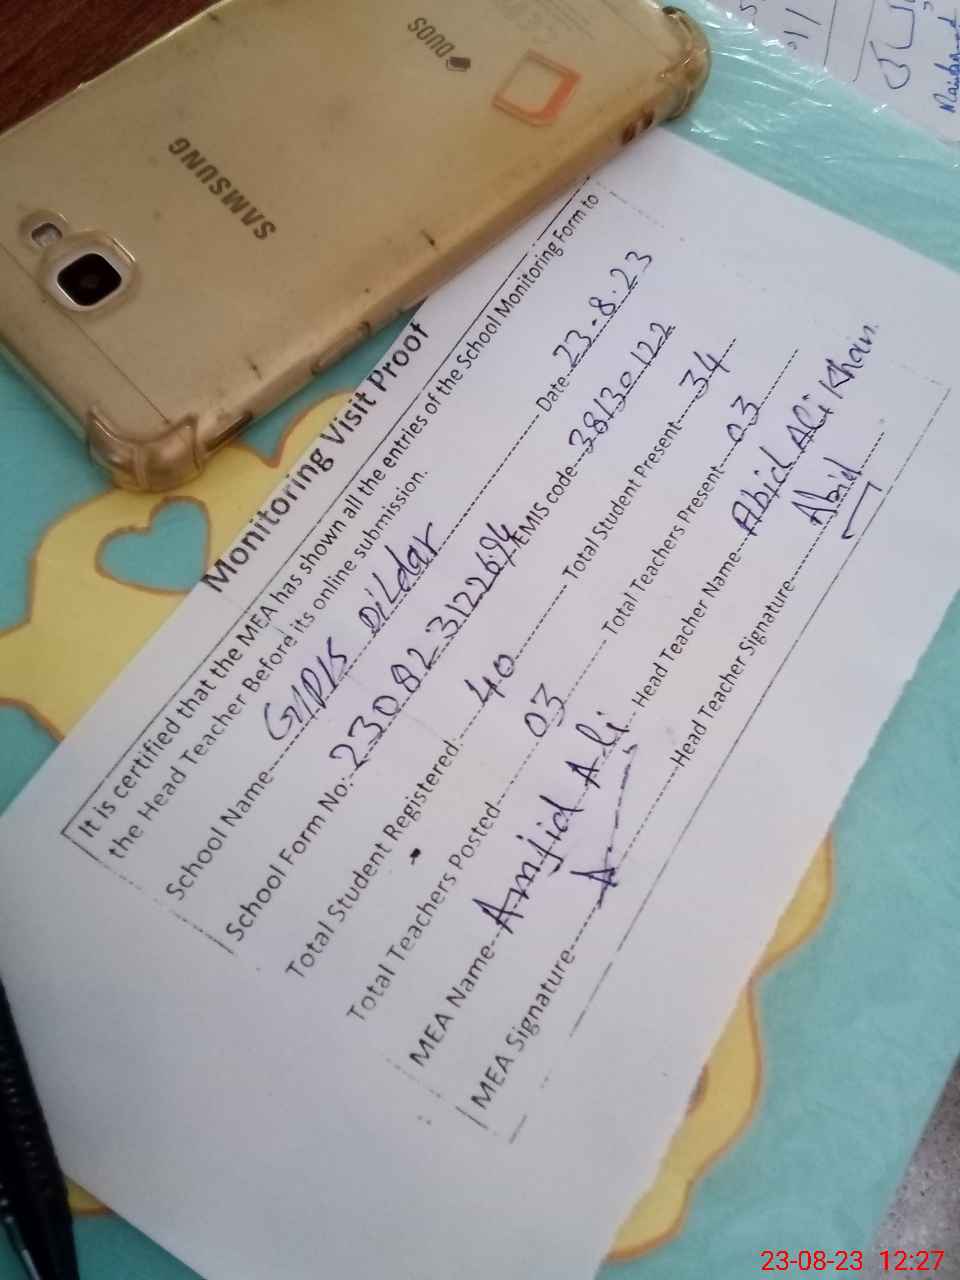 DUOS
SAMSUNG
Monitoring Visit Proof
It is certified that the MEA has shown all the entries of the School Monitoring Form to
the Head Teacher Before its online submission.
School Name GMPLS Dildar Date 23-8-23
School Form No: EMIS code 38130122
Total Student Registered 40 Total Student Present 34
Total Teachers Posted 03 Total Teachers Present 03
MEA Name Amjid Ali Head Teacher Name Abid Ali Khan.
MEA Signature A Head Teacher Signature Abid
23-08-23 12:27